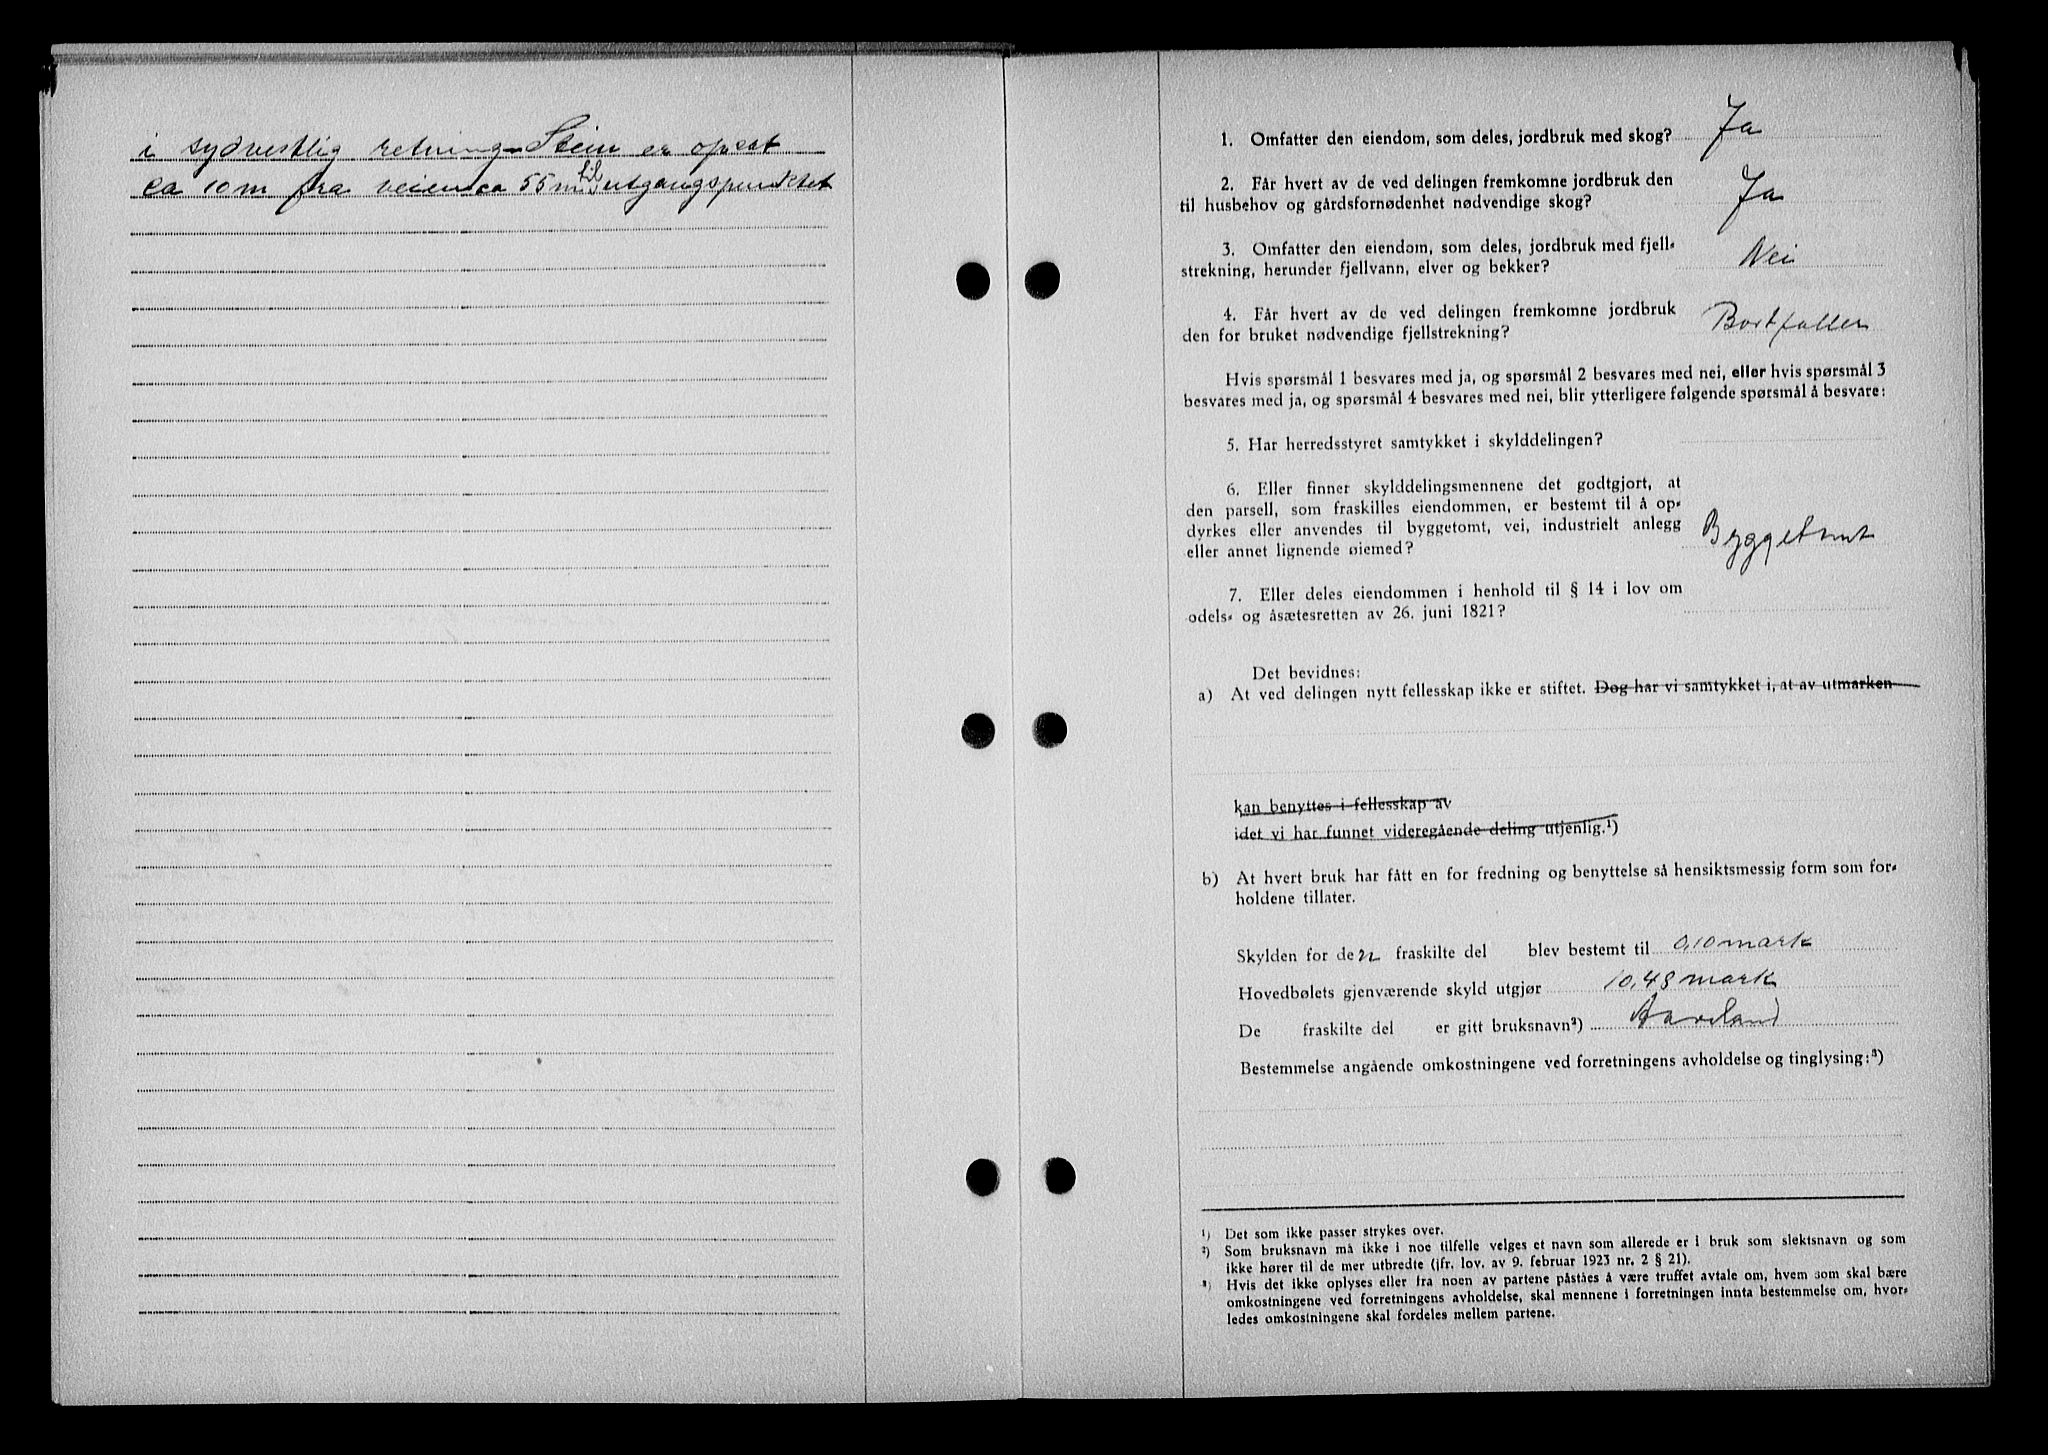 i sydvestlig retning - Stein er opsat
ca 10 m fra veien ca 55 m til utgangspunktet
1. Omfatter den eiendom, som deles, jordbruk med skog? Ja
2. Får hvert av de ved delingen fremkomne jordbruk den
til husbehov og gårdsfornødenhet nødvendige skog? Ja
3. Omfatter den eiendom, som deles, jordbruk med fjell-
strekning, herunder fjellvann, elver og bekker? Nei
4. Får hvert av de ved delingen fremkomne jordbruk
den for bruket nødvendige fjellstrekning? Bortfaller
Hvis spørsmål 1 besvares med ja, og spørsmål 2 besvares med nei, eller hvis spørsmål 3
besvares med ja, og spørsmål 4 besvares med nei, blir ytterligere følgende spørsmål å besvare:
5. Har herredsstyret samtykket i skylddelingen?
6. Eller finner skylddelingsmennene det godtgjort, at
den parsell, som fraskilles eiendommen, er bestemt til å op-
dyrkes eller anvendes til byggetomt, vei, industrielt anlegg
eller annet lignende øiemed? Byggetomt
7. Eller deles eiendommen i henhold til § 14 i lov om
odels- og åsætesretten av 26. juni 1821?
Det bevidnes:
a) At ved delingen nytt fellesskap ikke er stiftet. Dog har vi samtykket i, at av utmarken
kan benyttes i fellesskap av
idet vi har funnet videregående deling utjenlig.¹)
b) At hvert bruk har fått en for fredning og benyttelse så hensiktsmessig form som for-
holdene tillater.
Skylden for den fraskilte del blev bestemt til 0,10 mark
Hovedbølets gjenværende skyld utgjør 10,48 mark
De fraskilte del er gitt bruksnavn²)
Bestemmelse angående omkostningene ved forretningens avholdelse og tinglysing:³)
¹) Det som ikke passer strykes over.
²) Som bruksnavn må ikke i noe tilfelle velges et navn som allerede er i bruk som slektsnavn og som
ikke hører til de mer utbredte (jfr. lov. av 9. februar 1923 nr. 2 § 21).
³) Hvis det ikke oplyses eller fra noen av partene påståes å være truffet avtale om, hvem som skal bære
omkostningene ved forretningens avholdelse, skal mennene i forretningen innta bestemmelse om, hvor-
ledes omkostningene skal fordeles mellem partene.